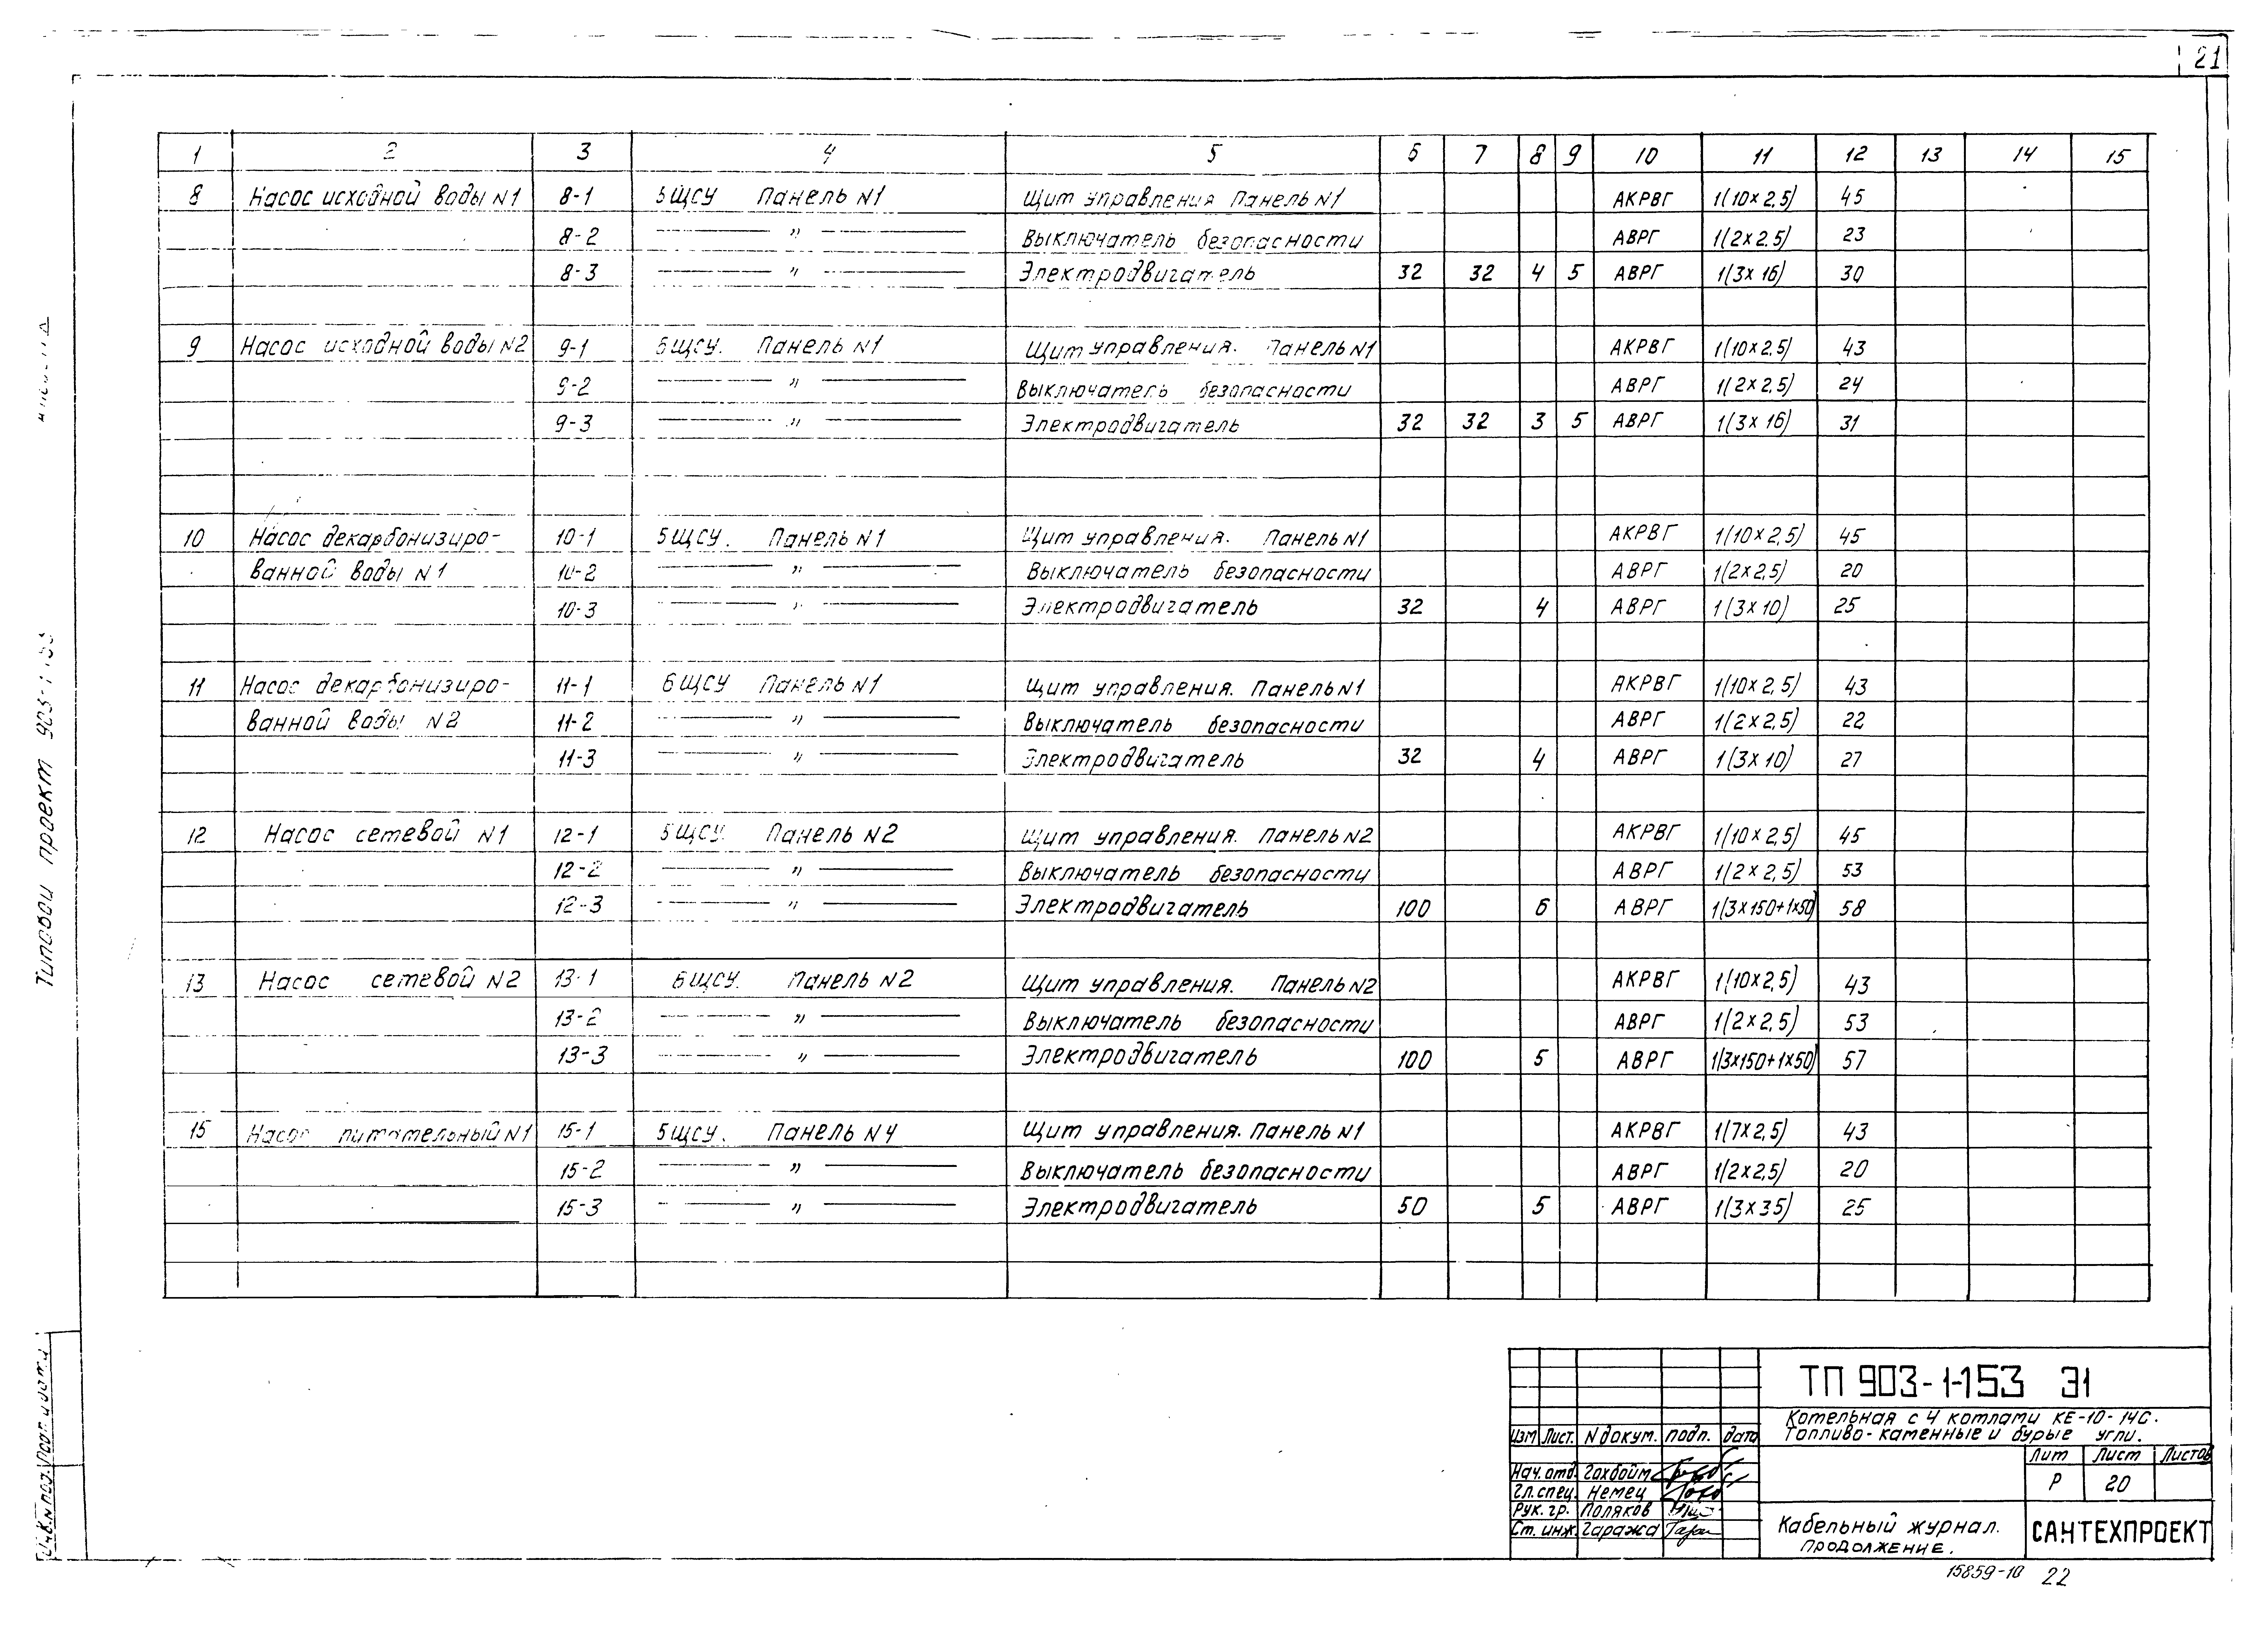 21
1 2 3 4 5 6 7 8 9 10 11 12 13 14 15
8 Насос исходной воды N1 8-1 5ЩСУ Панель N1 Щит управления Панель N1 АКРВГ 1(10×2,5) 45
8-2 — " — Выключатель безопасности АВРГ 1(2×2,5) 23
8-3 — " — Электродвигатель 32 32 4 5 АВРГ 1(3×16) 30
9 Насос исходной воды N2 9-1 6ЩСУ. Панель N1 Щит управления. Панель N1 АКРВГ 1(10×2,5) 43
9-2 — " — Выключатель безопасности АВРГ 1(2×2,5) 24
9-3 — " — Электродвигатель 32 32 3 5 АВРГ 1(3×16) 31
10 Насос декарбонизиро- 10-1 5ЩСУ. Панель N1 Щит управления. Панель N1 АКРВГ 1(10×2,5) 45
ванной воды N1 10-2 — " — Выключатель безопасности АВРГ 1(2×2,5) 20
10-3 — " — Электродвигатель 32 4 АВРГ 1(3×10) 25
11 Насос декарбонизиро- 11-1 6ЩСУ Панель N1 Щит управления. Панель N1 АКРВГ 1(10×2,5) 43
ванной воды N2 11-2 — " — Выключатель безопасности АВРГ 1(2×2,5) 22
11-3 — " — Электродвигатель 32 4 АВРГ 1(3×10) 27
12 Насос сетевой N1 12-1 5ЩСУ. Панель N2 Щит управления. Панель N2 АКРВГ 1(10×2,5) 45
12-2 — " — Выключатель безопасности АВРГ 1(2×2,5) 53
12-3 — " — Электродвигатель 100 6 АВРГ 1(3×150+1×50) 58
13 Насос сетевой N2 13-1 6ЩСУ. Панель N2 Щит управления. Панель N2 АКРВГ 1(10×2,5) 43
13-2 — " — Выключатель безопасности АВРГ 1(2×2,5) 53
13-3 — " — Электродвигатель 100 5 АВРГ 1(3×150+1×50) 57
15 Насос питательный N1 15-1 5ЩСУ. Панель N4 Щит управления. Панель N1 АКРВГ 1(7×2,5) 43
15-2 — " — Выключатель безопасности АВРГ 1(2×2,5) 20
15-3 — " — Электродвигатель 50 5 АВРГ 1(3×35) 25
Типовой проект 903-1-153
Инв.N подл. Подп. и дата
ТП 903-1-153 Э1
Котельная с 4 котлами КЕ-10-14С.
Топливо-каменные и бурые угли.
Изм Лист. N докум. подп. дата
Лит Лист Листов
Р 20
Нач.отд. Гохбойм
Гл.спец. Немец
Рук. гр. Поляков
Ст. инж. Гаража
Кабельный журнал.
Продолжение.
САНТЕХПРОЕКТ
15859-10 22